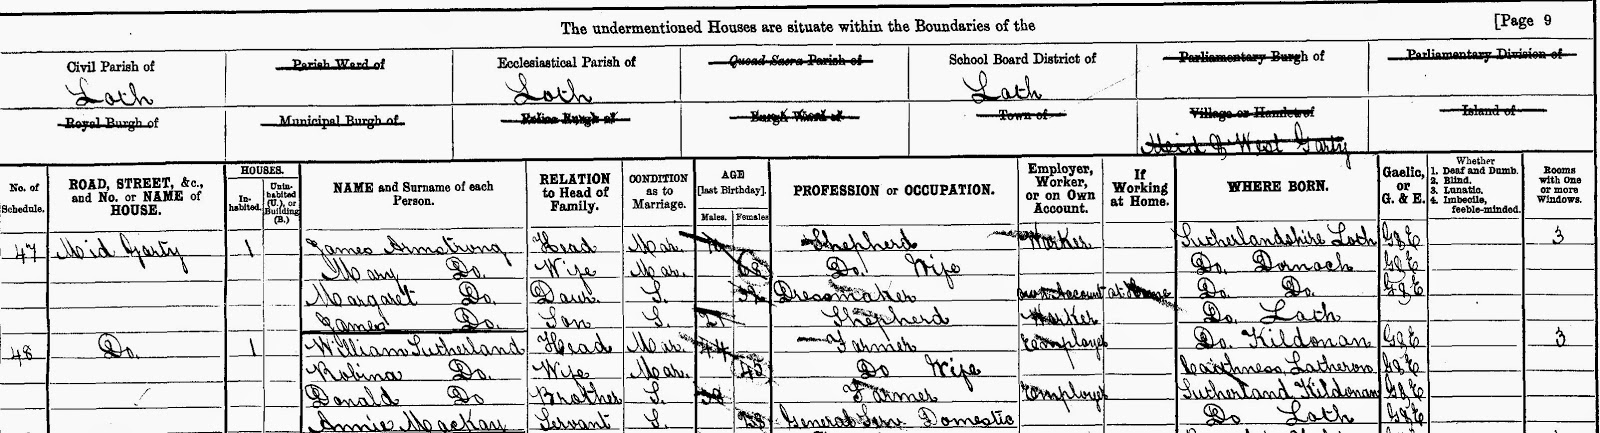 The undermentioned Houses are situate within the Boundaries of the
[Page 9
Civil Parish of
Loth
Parish Ward of
Ecclesiastical Parish of
Loth
Quoad Sacra Parish of
School Board District of
Loth
Parliamentary Burgh of
Parliamentary Division of
Royal Burgh of
Municipal Burgh of
Police Burgh of
Burgh Ward of
Town of
Village or Hamlet of
Mid & West Garty
Island of
No. of Schedule.
ROAD, STREET, &c., and No. or NAME of HOUSE.
HOUSES.
In-habited.
Unin-habited (U.), or Building (B.)
NAME and Surname of each Person.
RELATION to Head of Family.
CONDITION as to Marriage.
AGE [last Birthday].
Males.
Females
PROFESSION or OCCUPATION.
Employer, Worker, or on Own Account.
If Working at Home.
WHERE BORN.
Gaelic, or G. & E.
Whether
1. Deaf and Dumb.
2. Blind.
3. Lunatic.
4. Imbecile, feeble-minded.
Rooms with One or more Windows.
47 Mid Garty 1 James Armstrong Head Mar. Shepherd Worker Sutherlandshire Loth G&E 3
Mary Do. Wife Mar. 68 Do. Wife Do. Dornoch G&E
Margaret Do. Daur. S. Dressmaker own Account at Home Do. Do. G&E
James Do. Son S. 21 Shepherd Worker Do. Loth
48 Do. 1 William Sutherland Head Mar. 44 Farmer Employer Do. Kildonan G&E 3
Robina Do. Wife Mar. 45 Do Wife Caithness, Latheron G&E
Donald Do Brother S. 38 Farmer Employer Sutherland Kildonan G&E
Annie Mackay Servant S. 28 General Serv Domestic Do Loth G&E